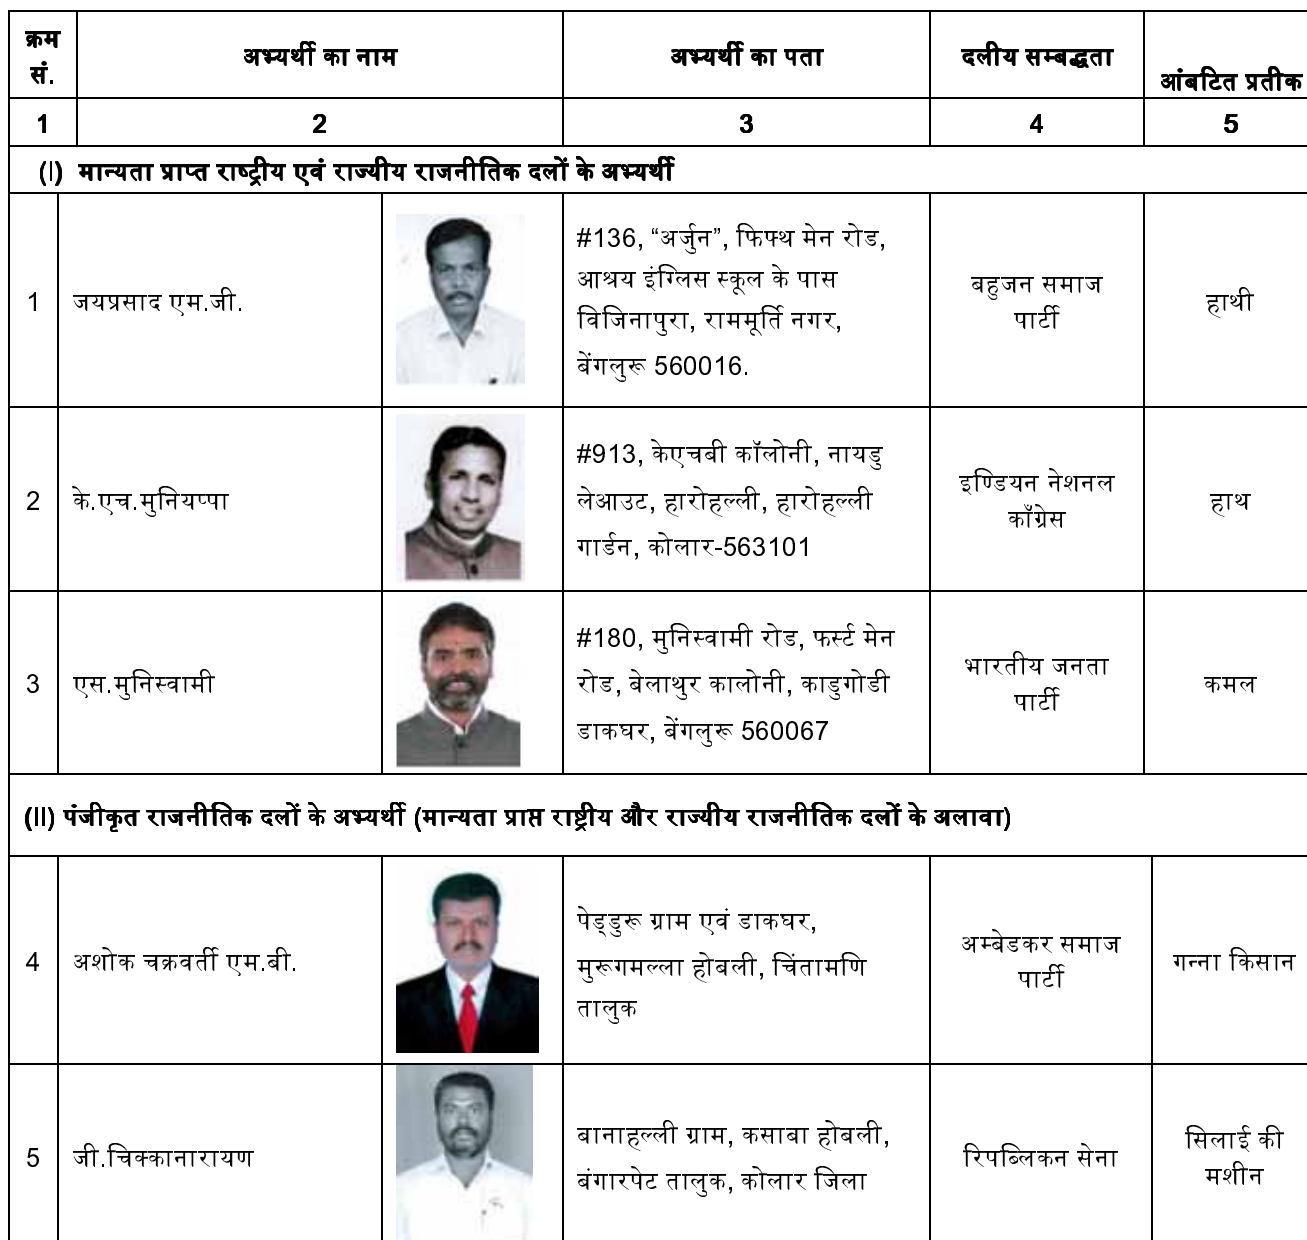 क्रम सं. अभ्यर्थी का नाम अभ्यर्थी का पता दलीय सम्बद्धता आंबटित प्रतीक
1 2 3 4 5
(I) मान्यता प्राप्त राष्ट्रीय एवं राज्यीय राजनीतिक दलों के अभ्यर्थी
1 जयप्रसाद एम.जी.
#136, “अर्जुन”, फिफ्थ मेन रोड,
आश्रय इंग्लिस स्कूल के पास
विजिनापुरा, राममूर्ति नगर,
बेंगलुरू 560016.
बहुजन समाज
पार्टी
हाथी
2 के.एच.मुनियप्पा
#913, केएचबी कॉलोनी, नायडु
लेआउट, हारोहल्ली, हारोहल्ली
गार्डन, कोलार-563101
इण्डियन नेशनल
काँग्रेस
हाथ
3 एस.मुनिस्वामी
#180, मुनिस्वामी रोड, फर्स्ट मेन
रोड, बेलाथुर कालोनी, काडुगोडी
डाकघर, बेंगलुरू 560067
भारतीय जनता
पार्टी
कमल
(II) पंजीकृत राजनीतिक दलों के अभ्यर्थी (मान्यता प्राप्त राष्ट्रीय और राज्यीय राजनीतिक दलों के अलावा)
4 अशोक चक्रवर्ती एम.बी.
पेड्डुरू ग्राम एवं डाकघर,
मुरूगमल्ला होबली, चिंतामणि
तालुक
अम्बेडकर समाज
पार्टी
गन्ना किसान
5 जी.चिक्कानारायण
बानाहल्ली ग्राम, कसाबा होबली,
बंगारपेट तालुक, कोलार जिला
रिपब्लिकन सेना
सिलाई की
मशीन